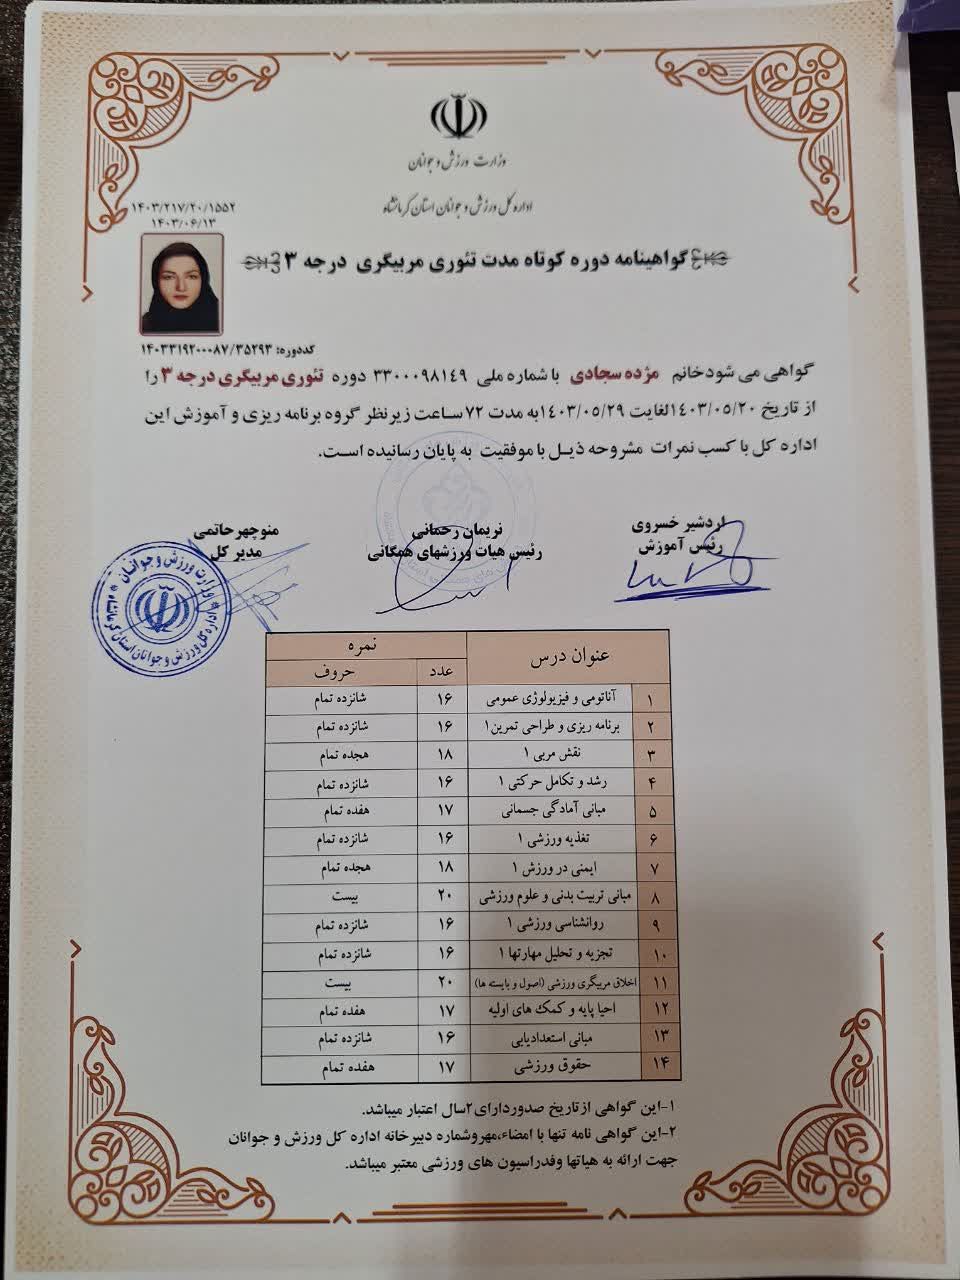 وزارت ورزش و جوانان
اداره کل ورزش و جوانان استان کرمانشاه
۱۴۰۳/۲۱۷/۲۰/۱۵۵۲
۱۴۰۳/۰۶/۱۳
گواهینامه دوره کوتاه مدت تئوری مربیگری درجه ۳
کددوره: ۱۴۰۳۳۱۹۲۰۰۰۸۷/۳۵۲۹۳
گواهی می شودخانم مژده سجادی با شماره ملی ۳۳۰۰۰۹۸۱۴۹ دوره تئوری مربیگری درجه ۳ را
از تاریخ ۱۴۰۳/۰۵/۲۰لغایت ۱۴۰۳/۰۵/۲۹به مدت ۷۲ ساعت زیرنظر گروه برنامه ریزی و آموزش این
اداره کل با کسب نمرات مشروحه ذیل با موفقیت به پایان رسانیده است.
اردشیر خسروی
رئیس آموزش
نریمان رحمانی
رئیس هیات ورزشهای همگانی
منوچهرحاتمی
مدیر کل
وزارت ورزش و جوانان
اداره کل ورزش و جوانان استان کرمانشاه
عنوان درس نمره
عدد حروف
۱ آناتومی و فیزیولوژی عمومی ۱۶ شانزده تمام
۲ برنامه ریزی و طراحی تمرین۱ ۱۶ شانزده تمام
۳ نقش مربی ۱ ۱۸ هجده تمام
۴ رشد و تکامل حرکتی ۱ ۱۶ شانزده تمام
۵ مبانی آمادگی جسمانی ۱۷ هفده تمام
۶ تغذیه ورزشی ۱ ۱۶ شانزده تمام
۷ ایمنی در ورزش ۱ ۱۸ هجده تمام
۸ مبانی تربیت بدنی و علوم ورزشی ۲۰ بیست
۹ روانشناسی ورزشی ۱ ۱۶ شانزده تمام
۱۰ تجزیه و تحلیل مهارتها ۱ ۱۶ شانزده تمام
۱۱ اخلاق مربیگری ورزشی (اصول و بایسته ها) ۲۰ بیست
۱۲ احیا پایه و کمک های اولیه ۱۷ هفده تمام
۱۳ مبانی استعدادیابی ۱۶ شانزده تمام
۱۴ حقوق ورزشی ۱۷ هفده تمام
۱-این گواهی ازتاریخ صدوردارای۲سال اعتبار میباشد.
۲-این گواهی نامه تنها با امضاء،مهروشماره دبیرخانه اداره کل ورزش و جوانان
جهت ارائه به هیاتها وفدراسیون های ورزشی معتبر میباشد.